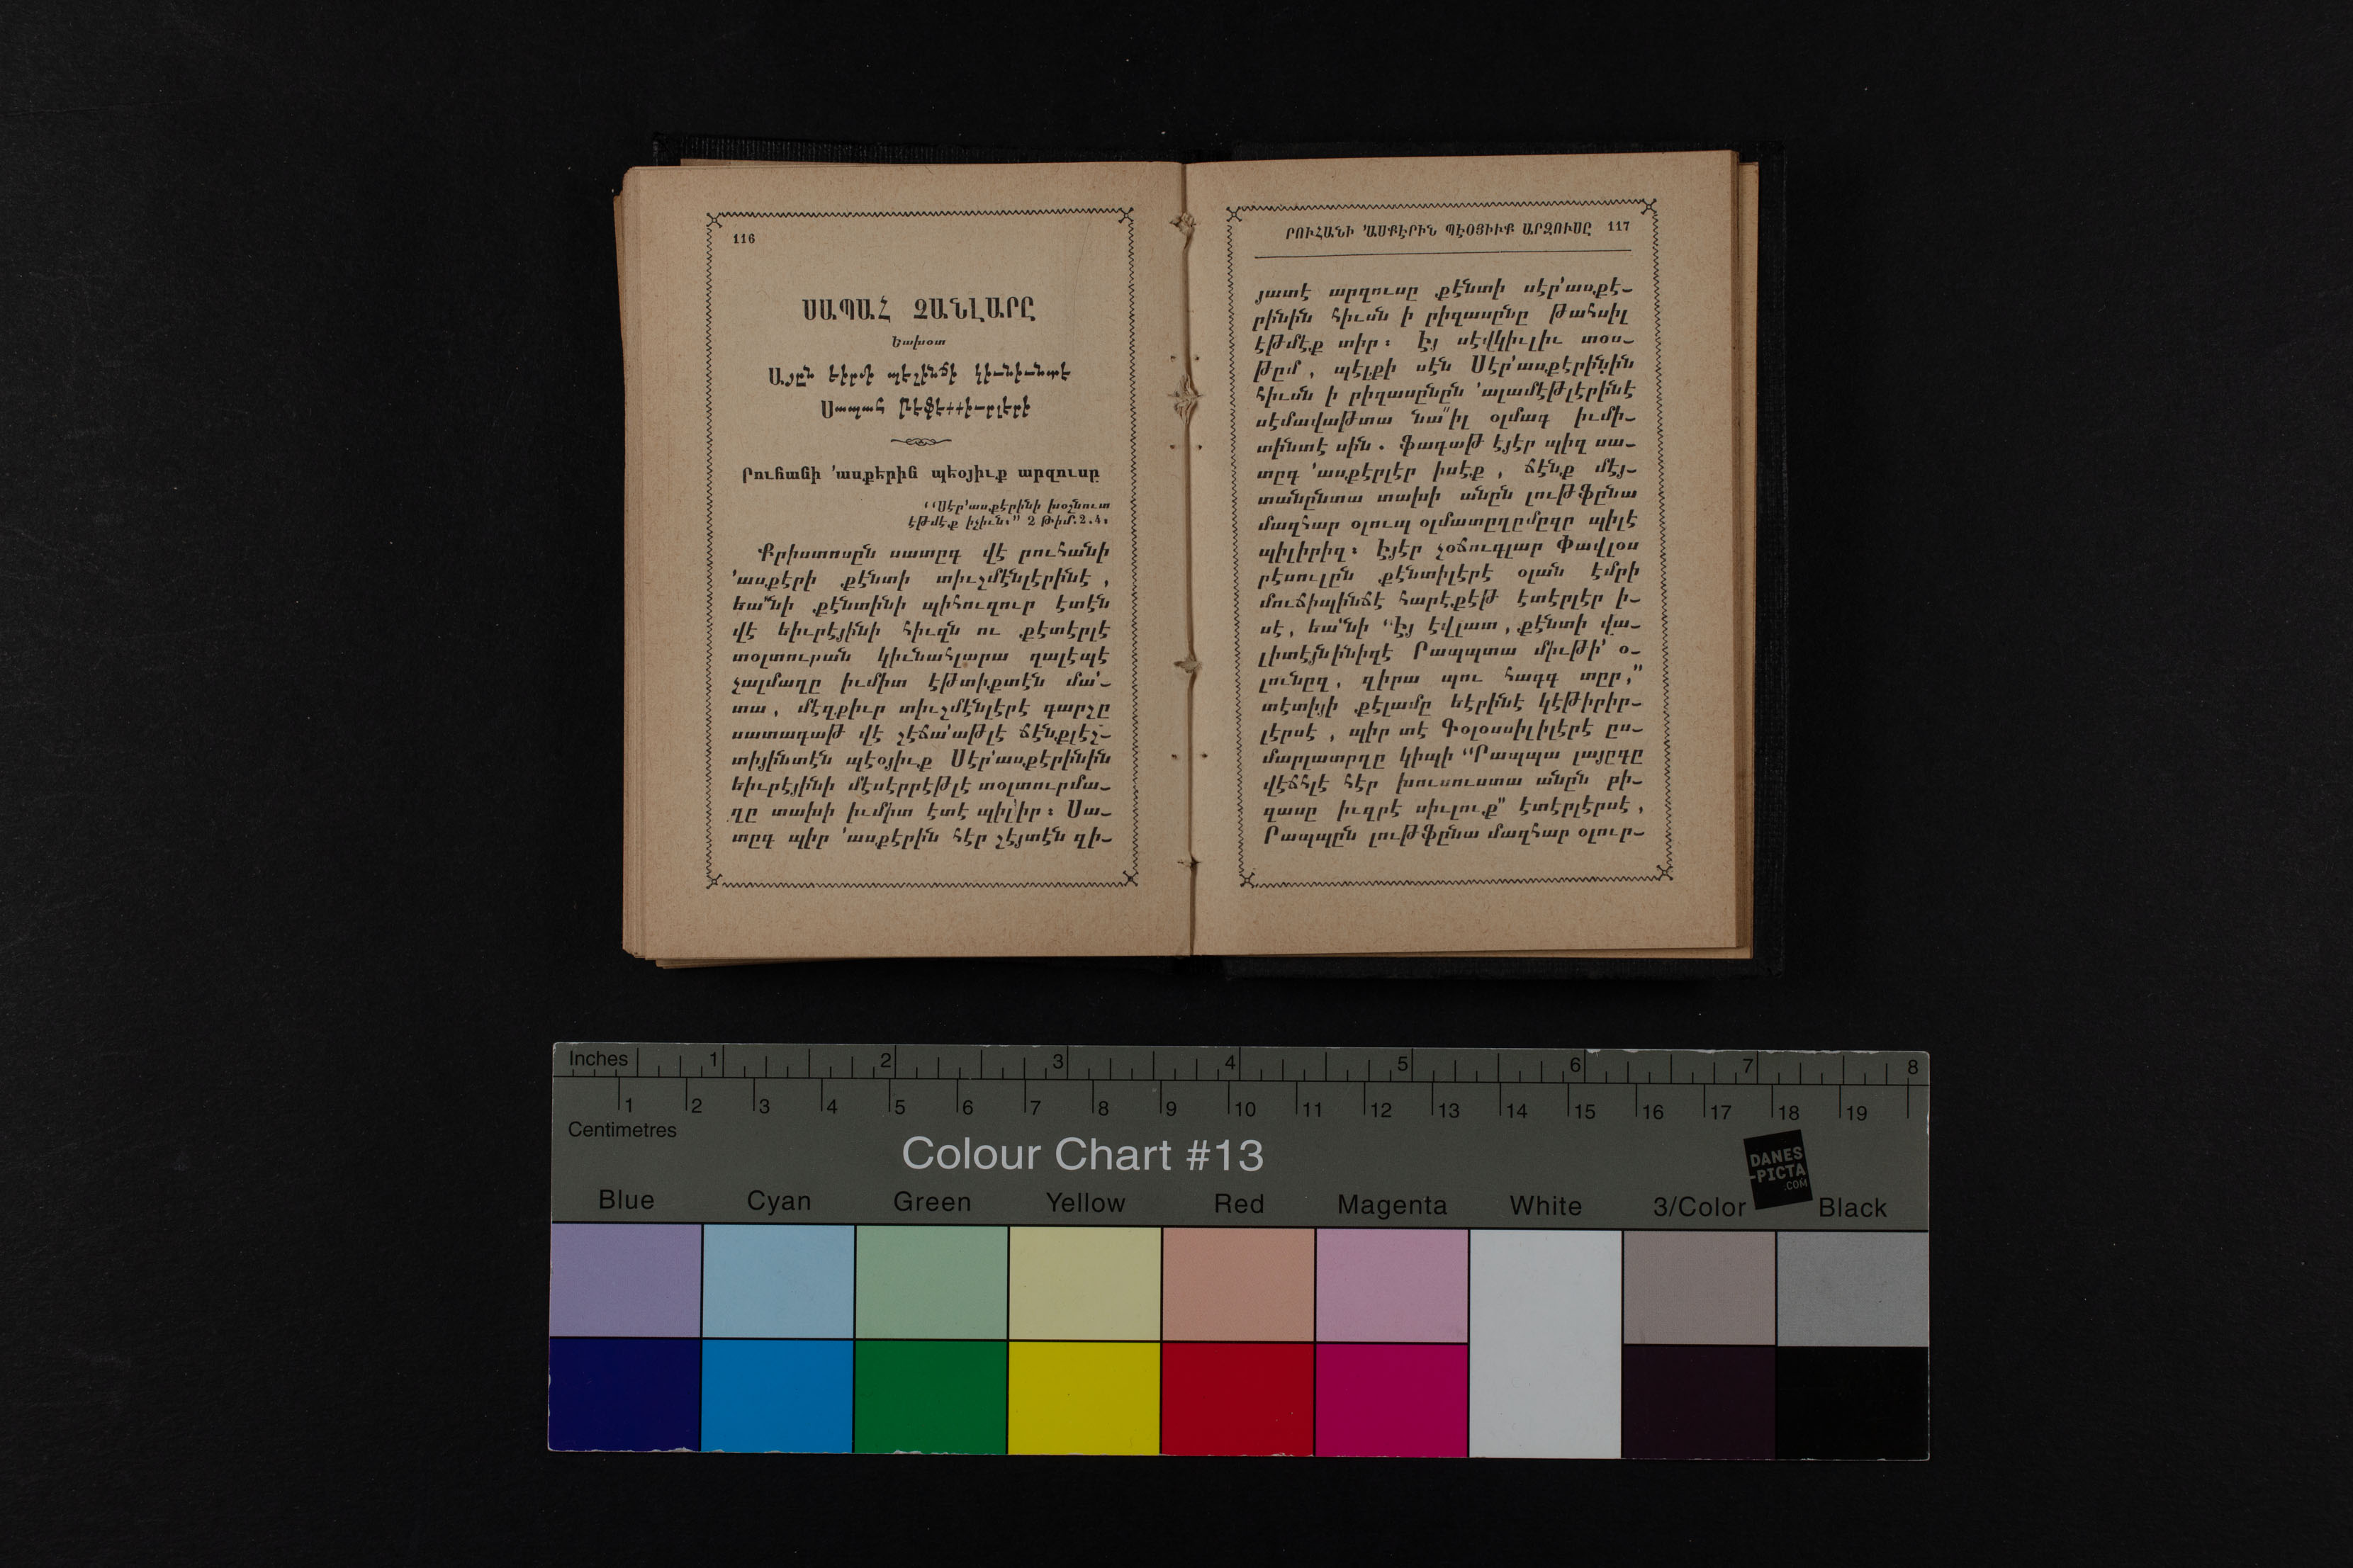 116
ՍԱՊԱՀ ՉԱՆԼԱՐԸ
Եախօտ
Այըն եիրմի պեշինճի կիւնիւնտէ
Սապահ Թեֆէքքիւրլերի
Րուհանի ՚ասքերին պեօյիւք արզուսը
“Սէր՚ասքէրինի խօշնուտ
էթմէք իչիւն։” 2 Թիմ.2.4։
Քրիստոսըն սատըգ վէ րուհանի
՚ասքէրի քէնտի տիւշմէնլէրինէ,
եա՚նի քէնտինի պիհուզուր էտէն
վէ եիւրէյինի հիւզն ու քէտէրլէ
տօլտուրան կիւնահլարա ղալէպէ
չալմաղը իւմիտ էթտիքտէն մա՚-
տա, մէզքիւր տիւշմէնլէրէ գարշը
սատագաթ վէ շէճա՚աթլէ ճէնքլէշ-
տիյինտէն պէօյիւք Սէր՚ասքէրինին
եիւրէյինի մէսէրրէթլէ տօլտուրմա-
ղը տախի իւմիտ էտէ պիլիր։ Սա-
տըգ պիր ՚ասքէրին հէր շէյտէն զի-
ՐՈՒՀԱՆԻ ՚ԱՍՔԷՐԻՆ ՊԷՕՅԻՒՔ ԱՐԶՈՒՍԸ 117
յատէ արզուսը քէնտի սէր՚ասքէ-
րինին հիւսն ի րիզասընը թահսիլ
էթմէք տիր։ Էյ սէվկիւլիւ տօս-
թըմ, պէլքի սէն Սէր՚ասքէրինին
հիւսն ի րիզասընըն ՚ալամէթլէրինէ
սէմավաթտա նա՛՛իլ օլմագ իւմի-
տինտէ սին. ֆագաթ էյէր պիզ սա-
տըգ ՚ասքէրլէր իսէք, ճէնք մէյ-
տանընտա տախի անըն լութֆընա
մազհար օլուպ օլմատըղըմըզը պիլէ
պիլիրիզ։ Էյէր չօճուգլար Փավլօս
րէսուլըն քէնտիլէրէ օլան էմրի
մուճիպինճէ հարէքէթ էտէրլէր ի-
սէ, եա՚նի “Էյ էվլատ, քէնտի վա-
լիտէյնինիզէ Րապպտա միւթի՚ օ-
լունըզ, զիրա պու հագգ տըր,”
տէտիյի քէլամը եէրինէ կէթիրիր-
լէրսէ, պիր տէ Գօլօսսիլիլէրէ ըս-
մարլատըղը կիպի “Րապպա լայըգը
վէճհլէ հէր խուսուստա անըն րի-
զասը իւզրէ սիւլուք” էտէրլէրսէ,
Րապպըն լութֆընա մազհար օլուր-
Inches 1 2 3 4 5 6 7 8
1 2 3 4 5 6 7 8 9 10 11 12 13 14 15 16 17 18 19
Centimetres
Colour Chart #13
DANES
-PICTA
.COM
Blue Cyan Green Yellow Red Magenta White 3/Color Black